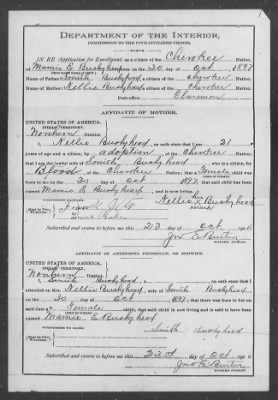 DEPARTMENT OF THE INTERIOR,
COMMISSION TO THE FIVE CIVILIZED TRIBES.
IN RE Application for Enrollment, as a citizen of the Cherokee Nation,
of Mamie E Bushyhead, born on the 30 day of Oct, 1897
Name of Father: Smith Bushyhead a citizen of the Cherokee Nation.
Name of Mother: Nellie Bushyhead a citizen of the Cherokee Nation.
Post-office
AFFIDAVIT OF MOTHER.
UNITED STATES OF AMERICA,
INDIAN TERRITORY,
Northern District.
I, Nellie Bushyhead, on oath state that I am 21
years of age and a citizen, by adoption, of the Cherokee Nation;
that I am the lawful wife of Smith Bushyhead, who is a citizen, by
Blood, of the Cherokee Nation; that a Female child was
born to me on 30 day of Oct, 1897, that said child has been named
Mamie E Bushyhead, and is now living.
Nellie Bushyhead
mark
Subscribed and sworn to before me this 23 day of Oct
NOTARY PUBLIC.
AFFIDAVIT OF ATTENDING PHYSICIAN, OR MIDWIFE.
UNITED STATES OF AMERICA,
INDIAN TERRITORY,
Northern District.
I, Smith Bushyhead, a, on oath state that I
attended on Mrs. Nellie Bushyhead, wife of Smith Bushyhead
on the 30 day of Oct, 1897; that there was born to her on
said date a Female child; that said child is now living and is said to have been
named Mamie E Bushyhead
Smith Bushyhead
Subscribed and sworn to before me this 23 day of Oct
NOTARY PUBLIC.